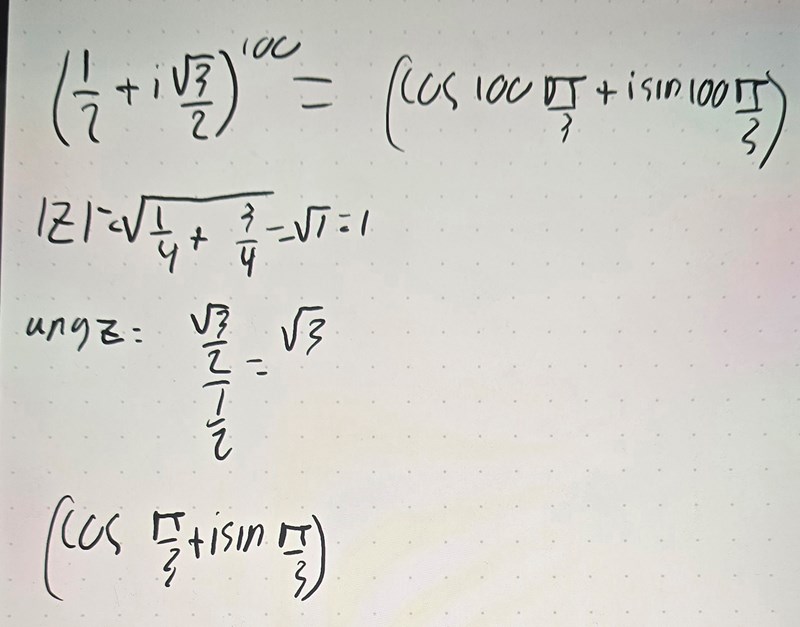 (1/2 + i √3/2)^100 = (cos 100 π/3 + i sin 100 π/3)
|z| = √(1/4 + 3/4) = √1 = 1
ang z = (√3/2)/(1/2) = √3
(cos π/3 + i sin π/3)